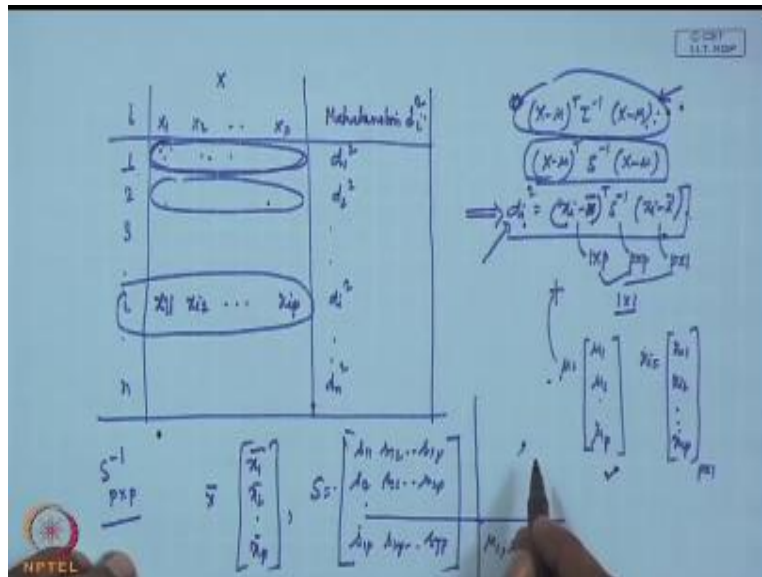 © CET
I.I.T. KGP
X
i x₁ x₂ .. xₚ Mahalanobis dᵢ²
1 d₁²
2 d₂²
3
i xᵢ₁ xᵢ₂ ... xᵢₚ dᵢ²
n dₙ²
(X-μ)ᵀ Σ⁻¹ (X-μ)
(X-μ)ᵀ S⁻¹ (X-μ)
⇒ dᵢ² = (xᵢ-x̄)ᵀ S⁻¹ (xᵢ-x̄)
1xp pxp px1
1x1
μ = [μ₁ μ₂ : μₚ] xᵢ = [xᵢ₁ xᵢ₂ : xᵢₚ] px1
S⁻¹ pxp
x̄ [x̄₁ x̄₂ : x̄ₚ] , S = [s₁₁ s₁₂ .. s₁ₚ
s₁₂ s₂₂ .. s₂ₚ
s₁ₚ s₂ₚ .. sₚₚ]
μ₁,
NPTEL